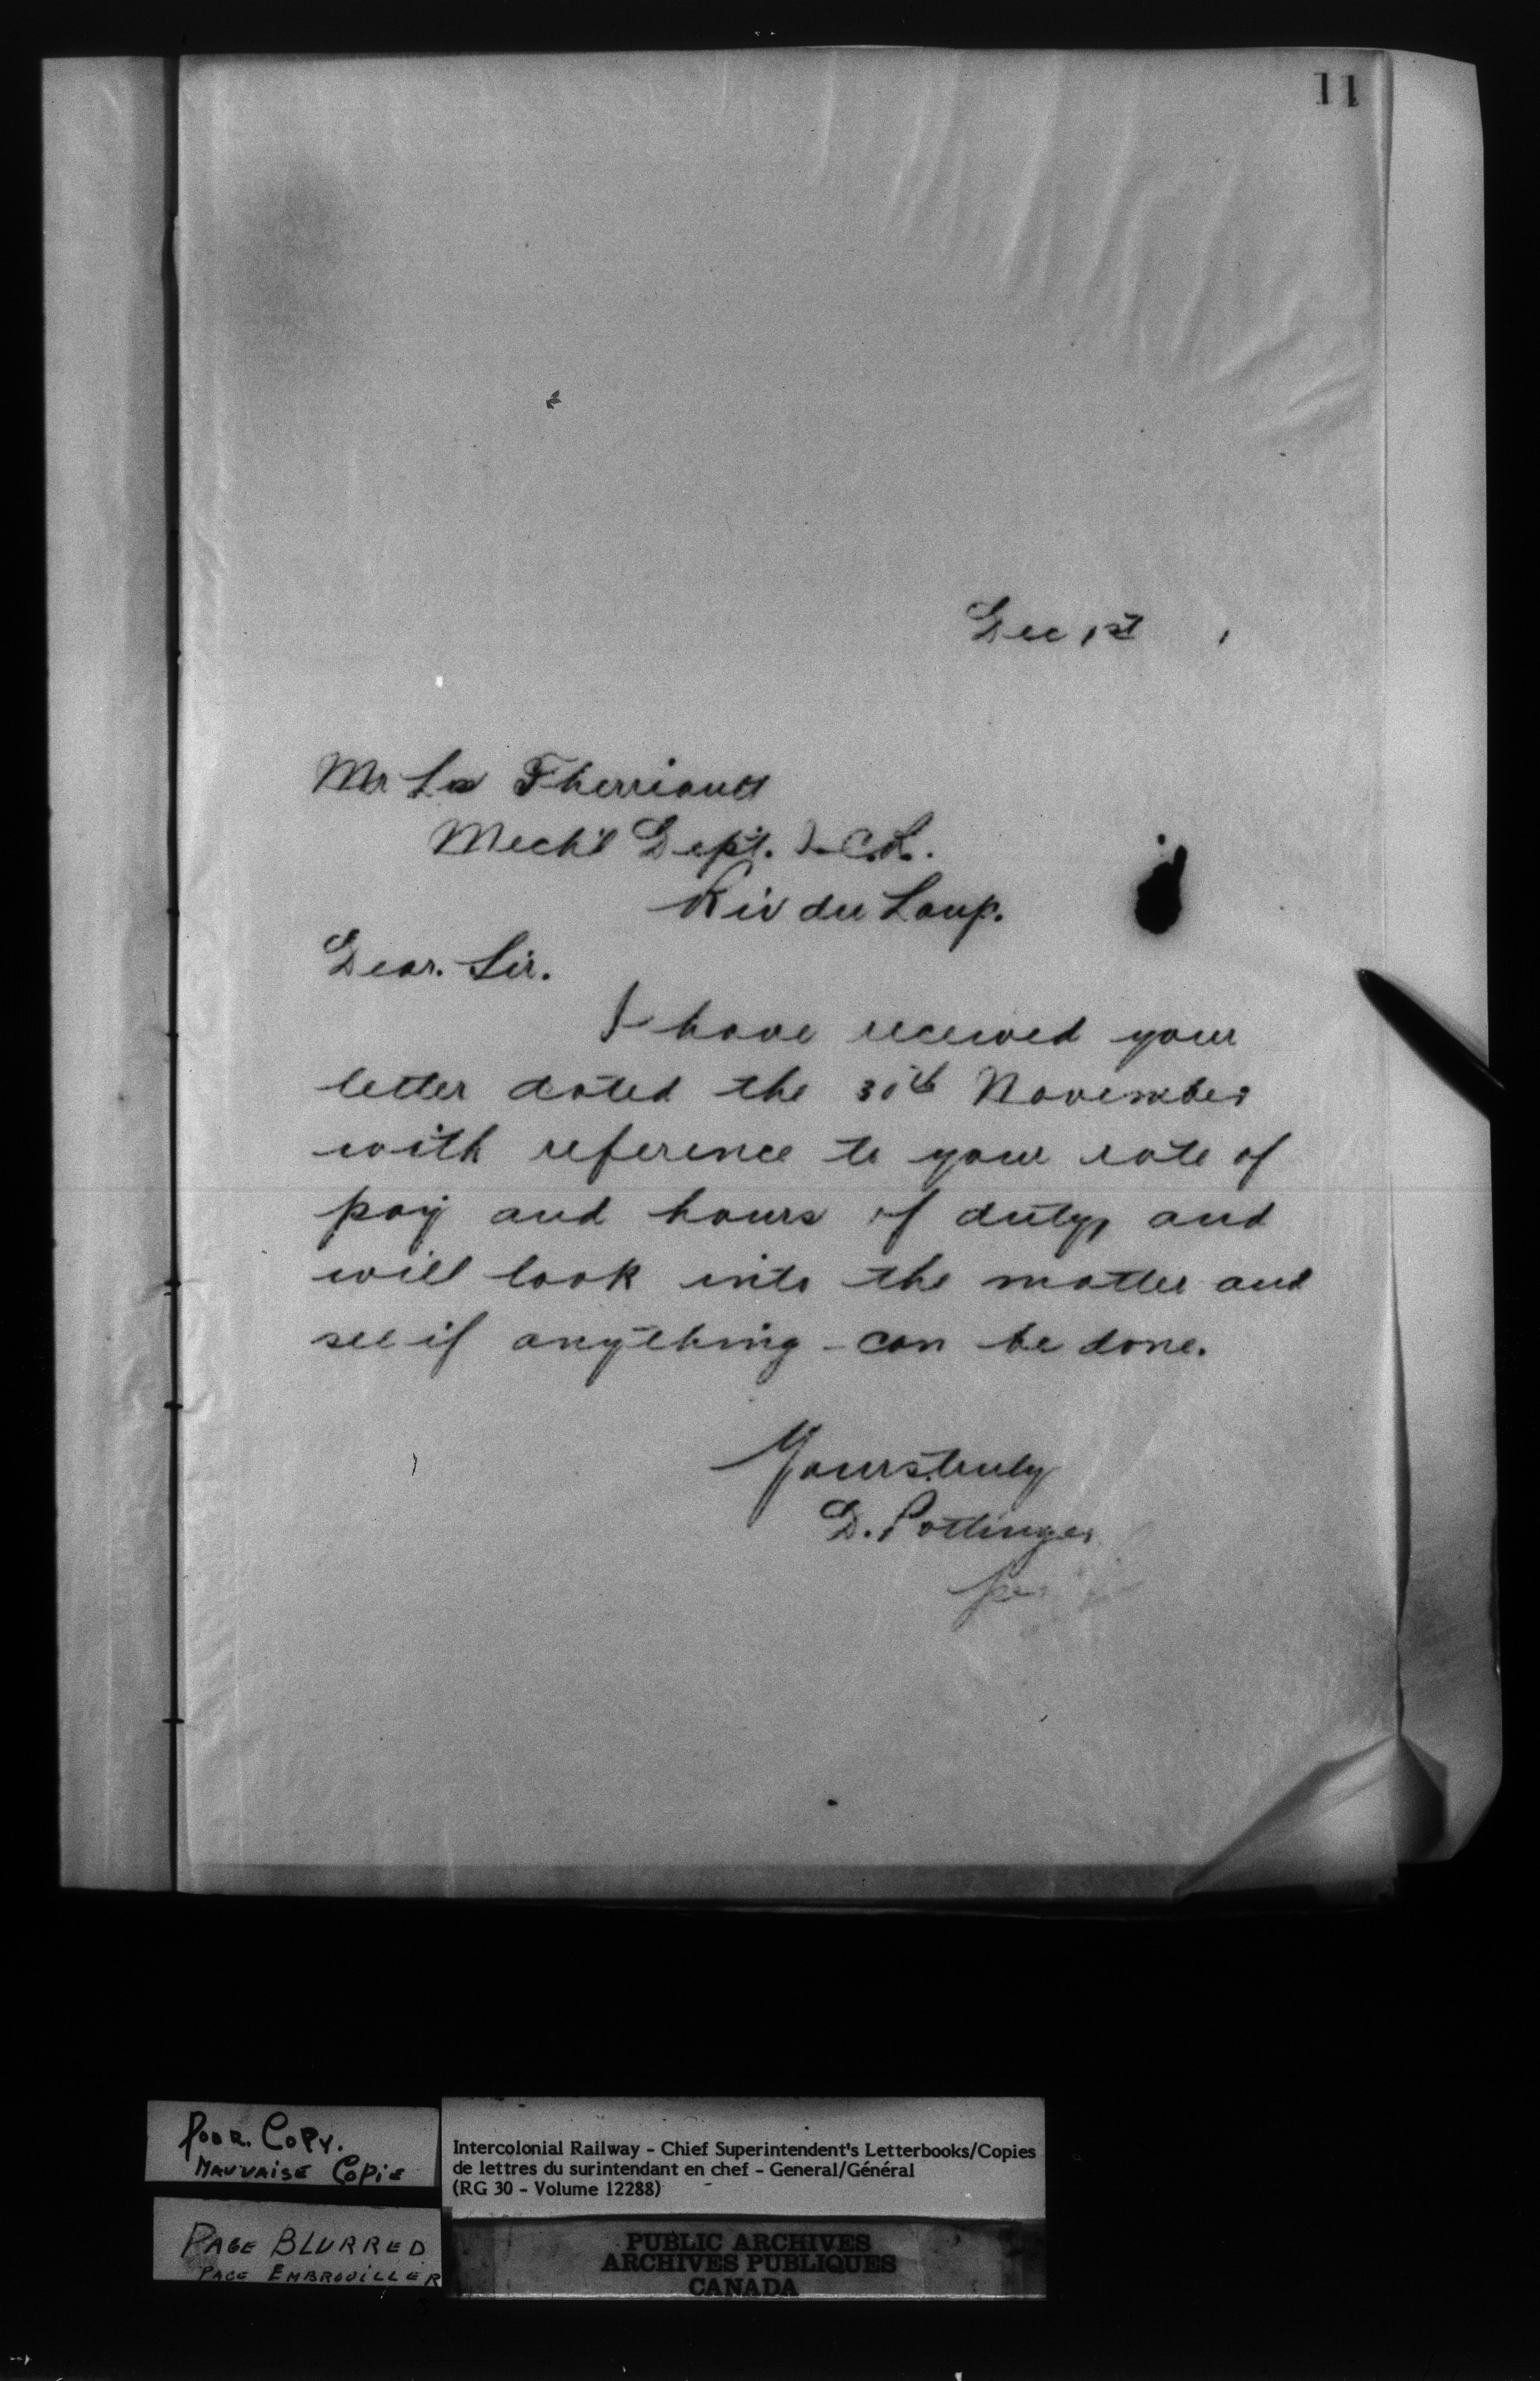 11
Dec 1st
Mr Therriault
Mech'l Dept. I.C.R.
Riv du Loup.
Dear. Sir.
I have received your
letter dated the 30th November
with reference to your rate of
pay and hours of duty, and
will look into the matter and
see if anything can be done.
Yours truly
D. Pottinger
per
POOR. COPY.
MAUVAISE COPIE
PAGE BLURRED
PAGE EMBROUILLER
Intercolonial Railway - Chief Superintendent's Letterbooks/Copies
de lettres du surintendant en chef - General/Général
(RG 30 - Volume 12288)
PUBLIC ARCHIVES
ARCHIVES PUBLIQUES
CANADA